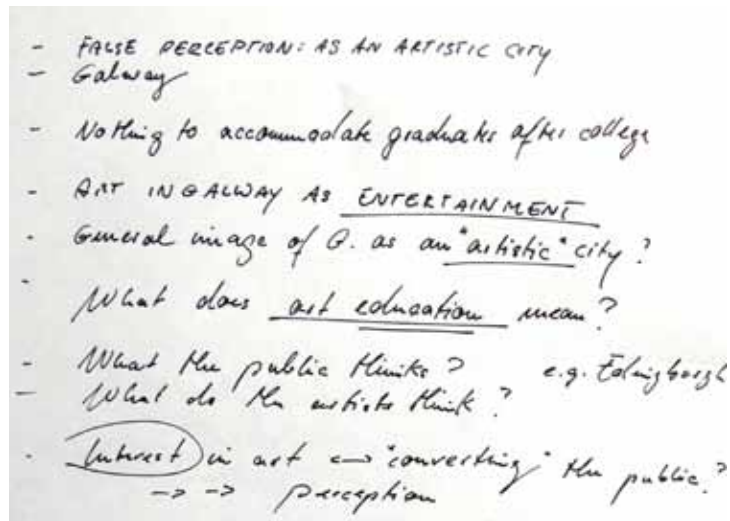 - FALSE PERCEPTION: AS AN ARTISTIC CITY
- Galway
- Nothing to accommodate graduates after college
- ART IN GALWAY AS ENTERTAINMENT
- General image of G. as an "artistic" city?
- What does art education mean?
- What the public thinks? e.g. Edingburgh
- What do the artists think?
- Interest in art <-> "converting" the public?
-> -> perception